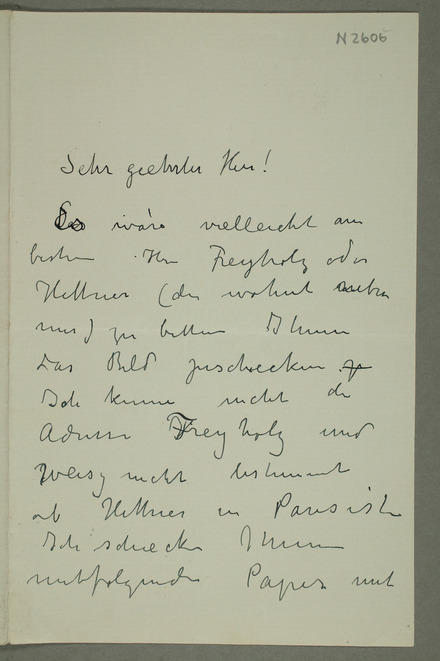 N 2606
Sehr geehrter Herr!
Es wäre vielleicht am
besten Herr Freyholz oder
Hettner (der wohnt neben
mir) zu bitten Ihnen
das Bild zuschicken
Ich kenne nicht die
Adresse Freyholz und
weisz nicht bestimmt
ob Hettner in Paris ist
Ich schicke Ihnen
mitfolgende Papier mit